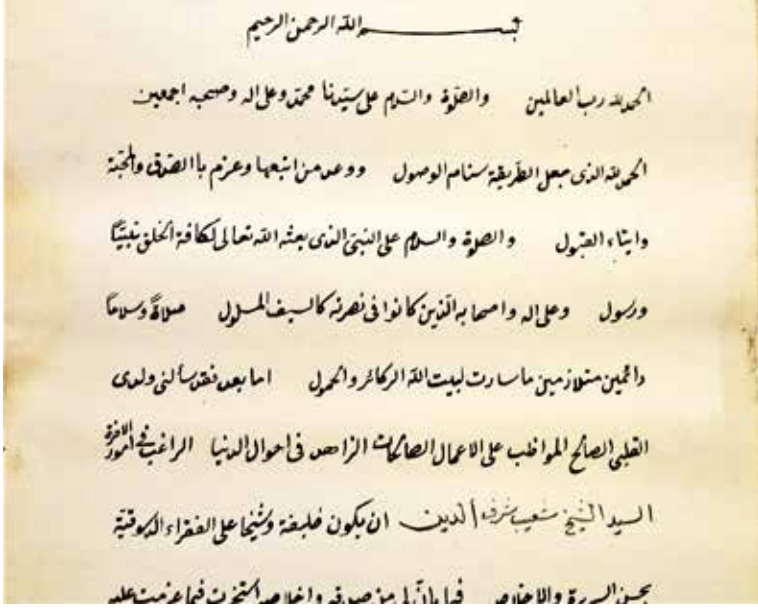 بسم الله الرحمن الرحيم
الحمد لله رب العالمين والصلوة والسلام على سيدنا محمد وعلى اله وصحبه اجمعين
الحمد لله الذى جعل الطريقة سنام الوصول ووعد من اتبعها وعزم باالصدق والمحبة
وايتاء القبول والصلوة والسلام على النبى الذى بعثه الله تعالى لكافة الخلق نبيًّا
ورسول وعلى اله واصحابه الذين كانوا فى نصرته كالسيف المسلول صلاةً وسلاماً
دائمين متلازمين ماسارت لبيت الله الركائز والحمول اما بعد فقد سألنى ولدى
القلبى الصالح المواظب على الاعمال الصالحات الزاهد فى احوال الدنيا الراغب فى امور الاخرة
السيد الشيخ شعيب شرف الدين ان يكون خليفة وشيخا على الفقراء الدسوقية
بحسن السيرة والاخلاص فبان لى من صدقه واخلاصه استخرت فيما عزمت عليه